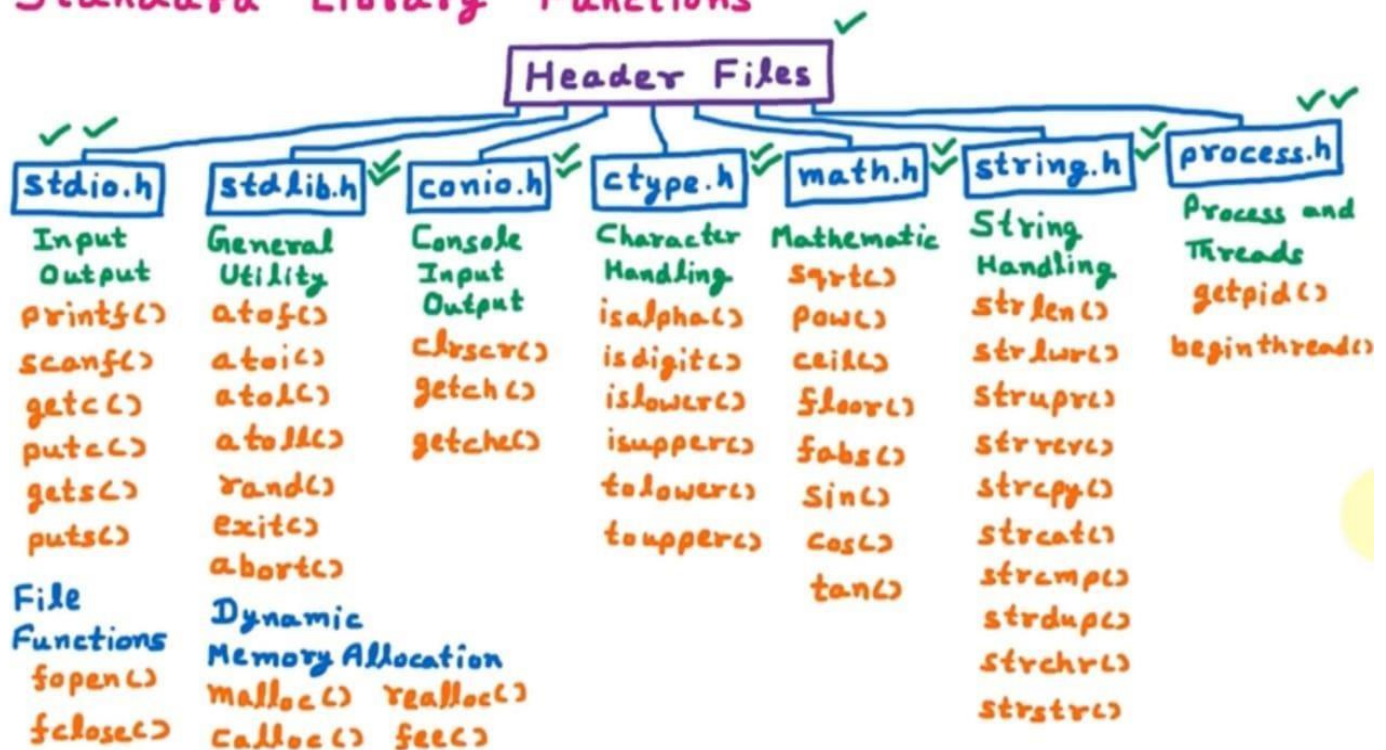 Standard Library Functions
Header Files
stdio.h
Input
Output
printf()
scanf()
getc()
putc()
gets()
puts()
File
Functions
fopen()
fclose()
stdlib.h
General
Utility
atof()
atoi()
atol()
atoll()
rand()
exit()
abort()
Dynamic
Memory Allocation
malloc() realloc()
calloc() fee()
conio.h
Console
Input
Output
clrscr()
getch()
getche()
ctype.h
Character
Handling
isalpha()
isdigit()
islower()
isupper()
tolower()
toupper()
math.h
Mathematic
sqrt()
pow()
ceil()
floor()
fabs()
sin()
cos()
tan()
string.h
String
Handling
strlen()
strlwr()
strupr()
strrev()
strcpy()
strcat()
strcmp()
strdup()
strchr()
strstr()
process.h
Process and
Threads
getpid()
beginthread()